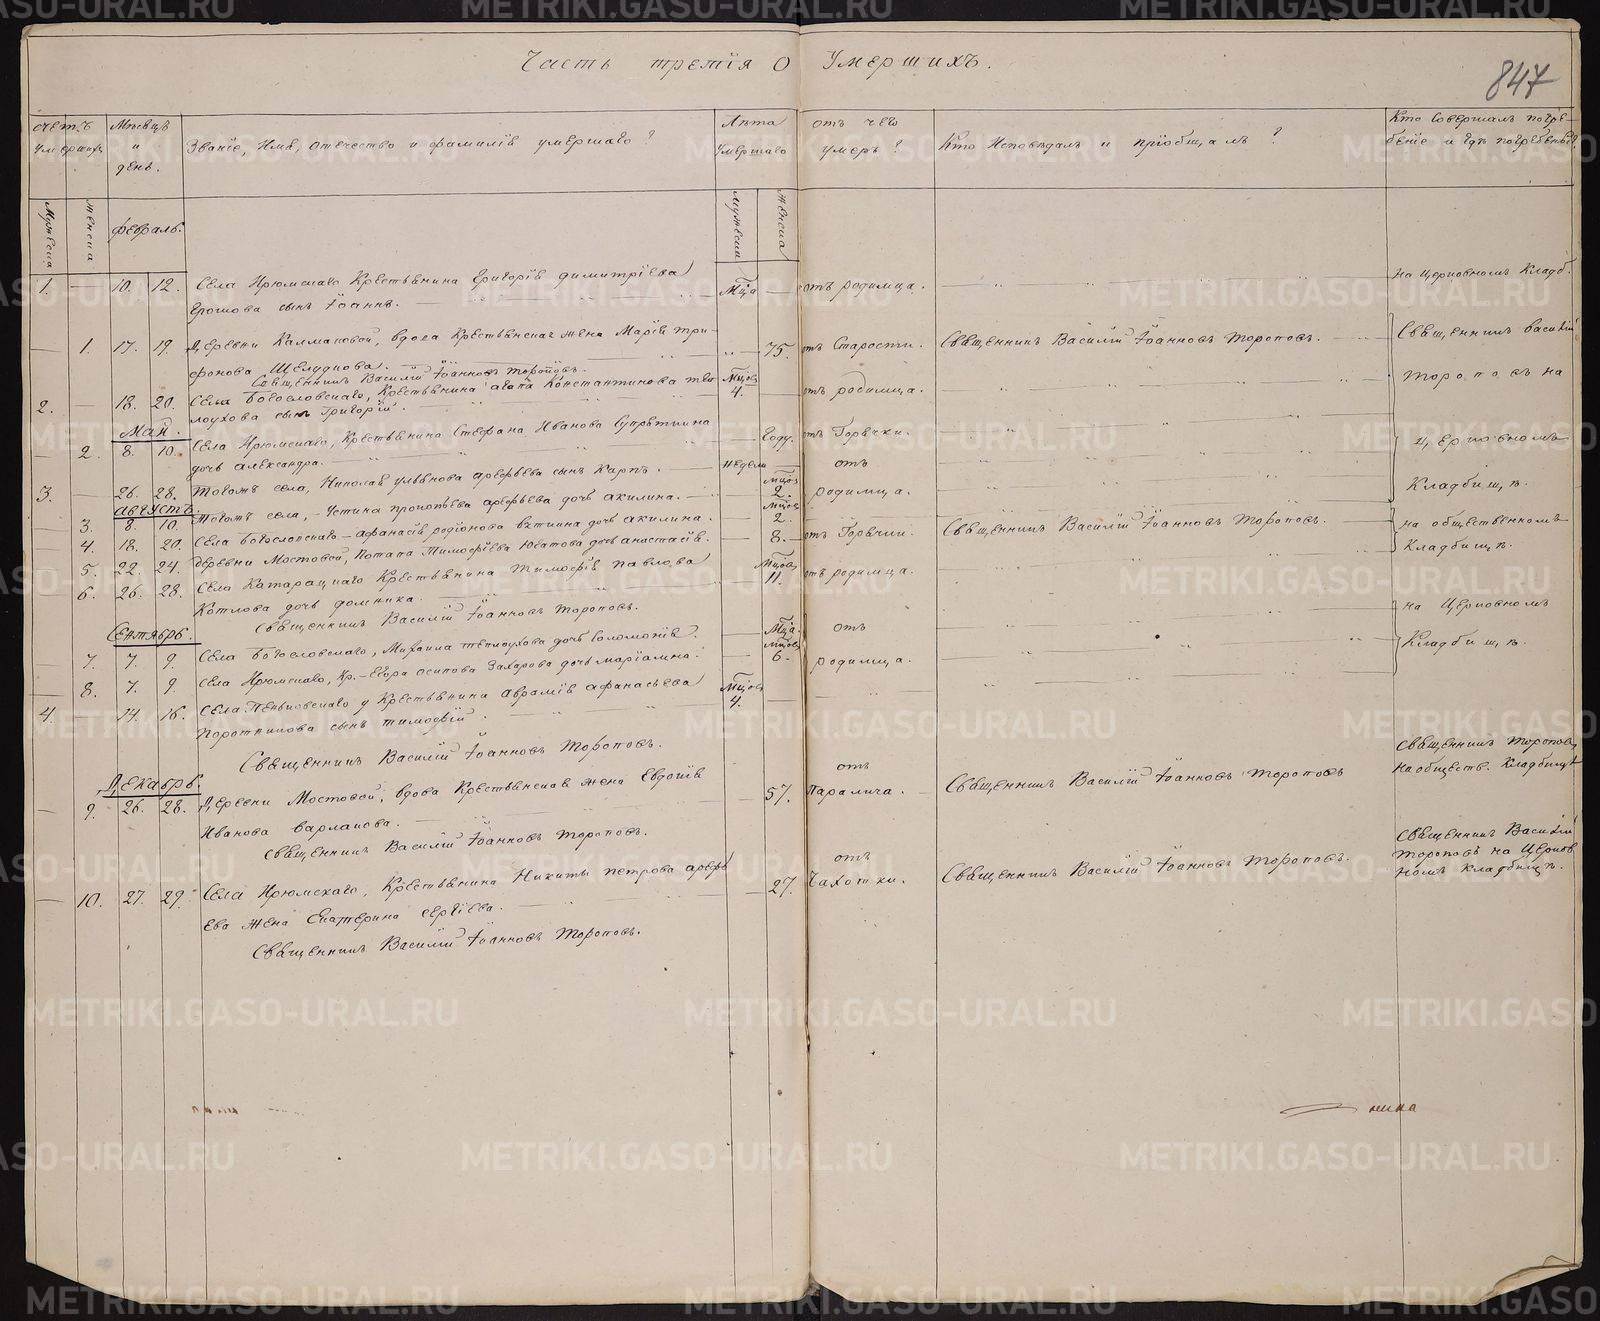 Часть третія О Умершихъ.
847
счетъ умершихъ
Мѣсяцъ и день.
Званіе, Имя, отечество и фамилія умершаго?
Лѣта умершаго
отъ чего умеръ?
Кто Исповѣдалъ и пріобщалъ?
Кто Совершалъ погребеніе и гдѣ погребены?
Мужеска
Женска
Февраль.
Мужеска
Женска
1. — 10. 12. Села Ирюмскаго Крестьянина Григорія Димитріева
Ерошова сынъ Іоаннъ. — Мца — отъ родимца. На Церковномъ Кладб.
— 1. 17. 19. Деревни Калмаковой, вдова Крестьянская жена Марія Три-
фонова Щелудкова. — 75. отъ Старости. Священникъ Василій Іоанновъ Тороповъ. Священникъ Василій
Священникъ Василій Іоанновъ Тороповъ.
2. — 18. 20. Села Богословскаго, Крестьянина Агапа Константинова Теп
лоухова сынъ Григорій. Мцов 4. отъ родимца. Тороповъ на
Май.
— 2. 8. 10. Села Ирюмскаго, Крестьянина Стефана Иванова Супрѣткина
дочь Александра. Году. отъ Горячки. Церковномъ
3. — 26. 28. Тогожъ села, Николая Ульянова Арефьева сынъ Карпъ. — Недели отъ Кладбищѣ.
Августъ.
— 3. 8. 10. Тогожъ села, — Устина Прокопьева Арефьева дочь Акилина. — Мцов 2. родимца.
— 4. 18. 20. Села Богословскаго — Афанасія Родіонова Вяткина дочь Акилина. Мцов 2.
— 5. 22. 24. Деревни Мостовой, Потапа Тимофѣева Юшатова дочь Анастасія. — 8. отъ Горячки. Священникъ Василій Іоанновъ Тороповъ. на общественномъ Кладбищѣ.
— 6. 26. 28. Села Катарацкаго Крестьянина Тимофѣя Павлова
Котлова дочь Домника. — Мцов 11. отъ родимца. на Церковномъ
Священникъ Василій Іоанновъ Тороповъ.
Сентябрь.
— 7. 7. 9. Села Богословскаго, Михаила Теплоухова дочь Соломонія. — Мца. отъ Кладбищѣ.
— 8. 7. 9. Села Ирюмскаго, Кр. — Егора Осипова Захарова дочь Маріамна. Мцов 6. родимца.
4. — 14. 16. Села Пеньковскаго у Крестьянина Аврамія Афанасьева
Поротникова сынъ Тимофѣй. Мцов 4.
Священникъ Василій Іоанновъ Тороповъ.
Декабрь.
— 9. 26. 28. Деревни Мостовой, вдова Крестьянская жена Евдокія
Иванова Варлакова. — 57. отъ Паралича. Священникъ Василій Іоанновъ Тороповъ Священникъ Тороповъ
На обществ. Кладбищѣ
Священникъ Василій Іоанновъ Тороповъ.
— 10. 27. 29. Села Ирюмскаго, Крестьянина Никиты Петрова Арефь
ева жена Екатерина Сергіева. — 27. отъ Чахотки. Священникъ Василій Іоанновъ Тороповъ. Священникъ Василій
Тороповъ на Церков
номъ кладбищѣ.
Священникъ Василій Іоанновъ Тороповъ.
METRIKI.GASO-URAL.RU